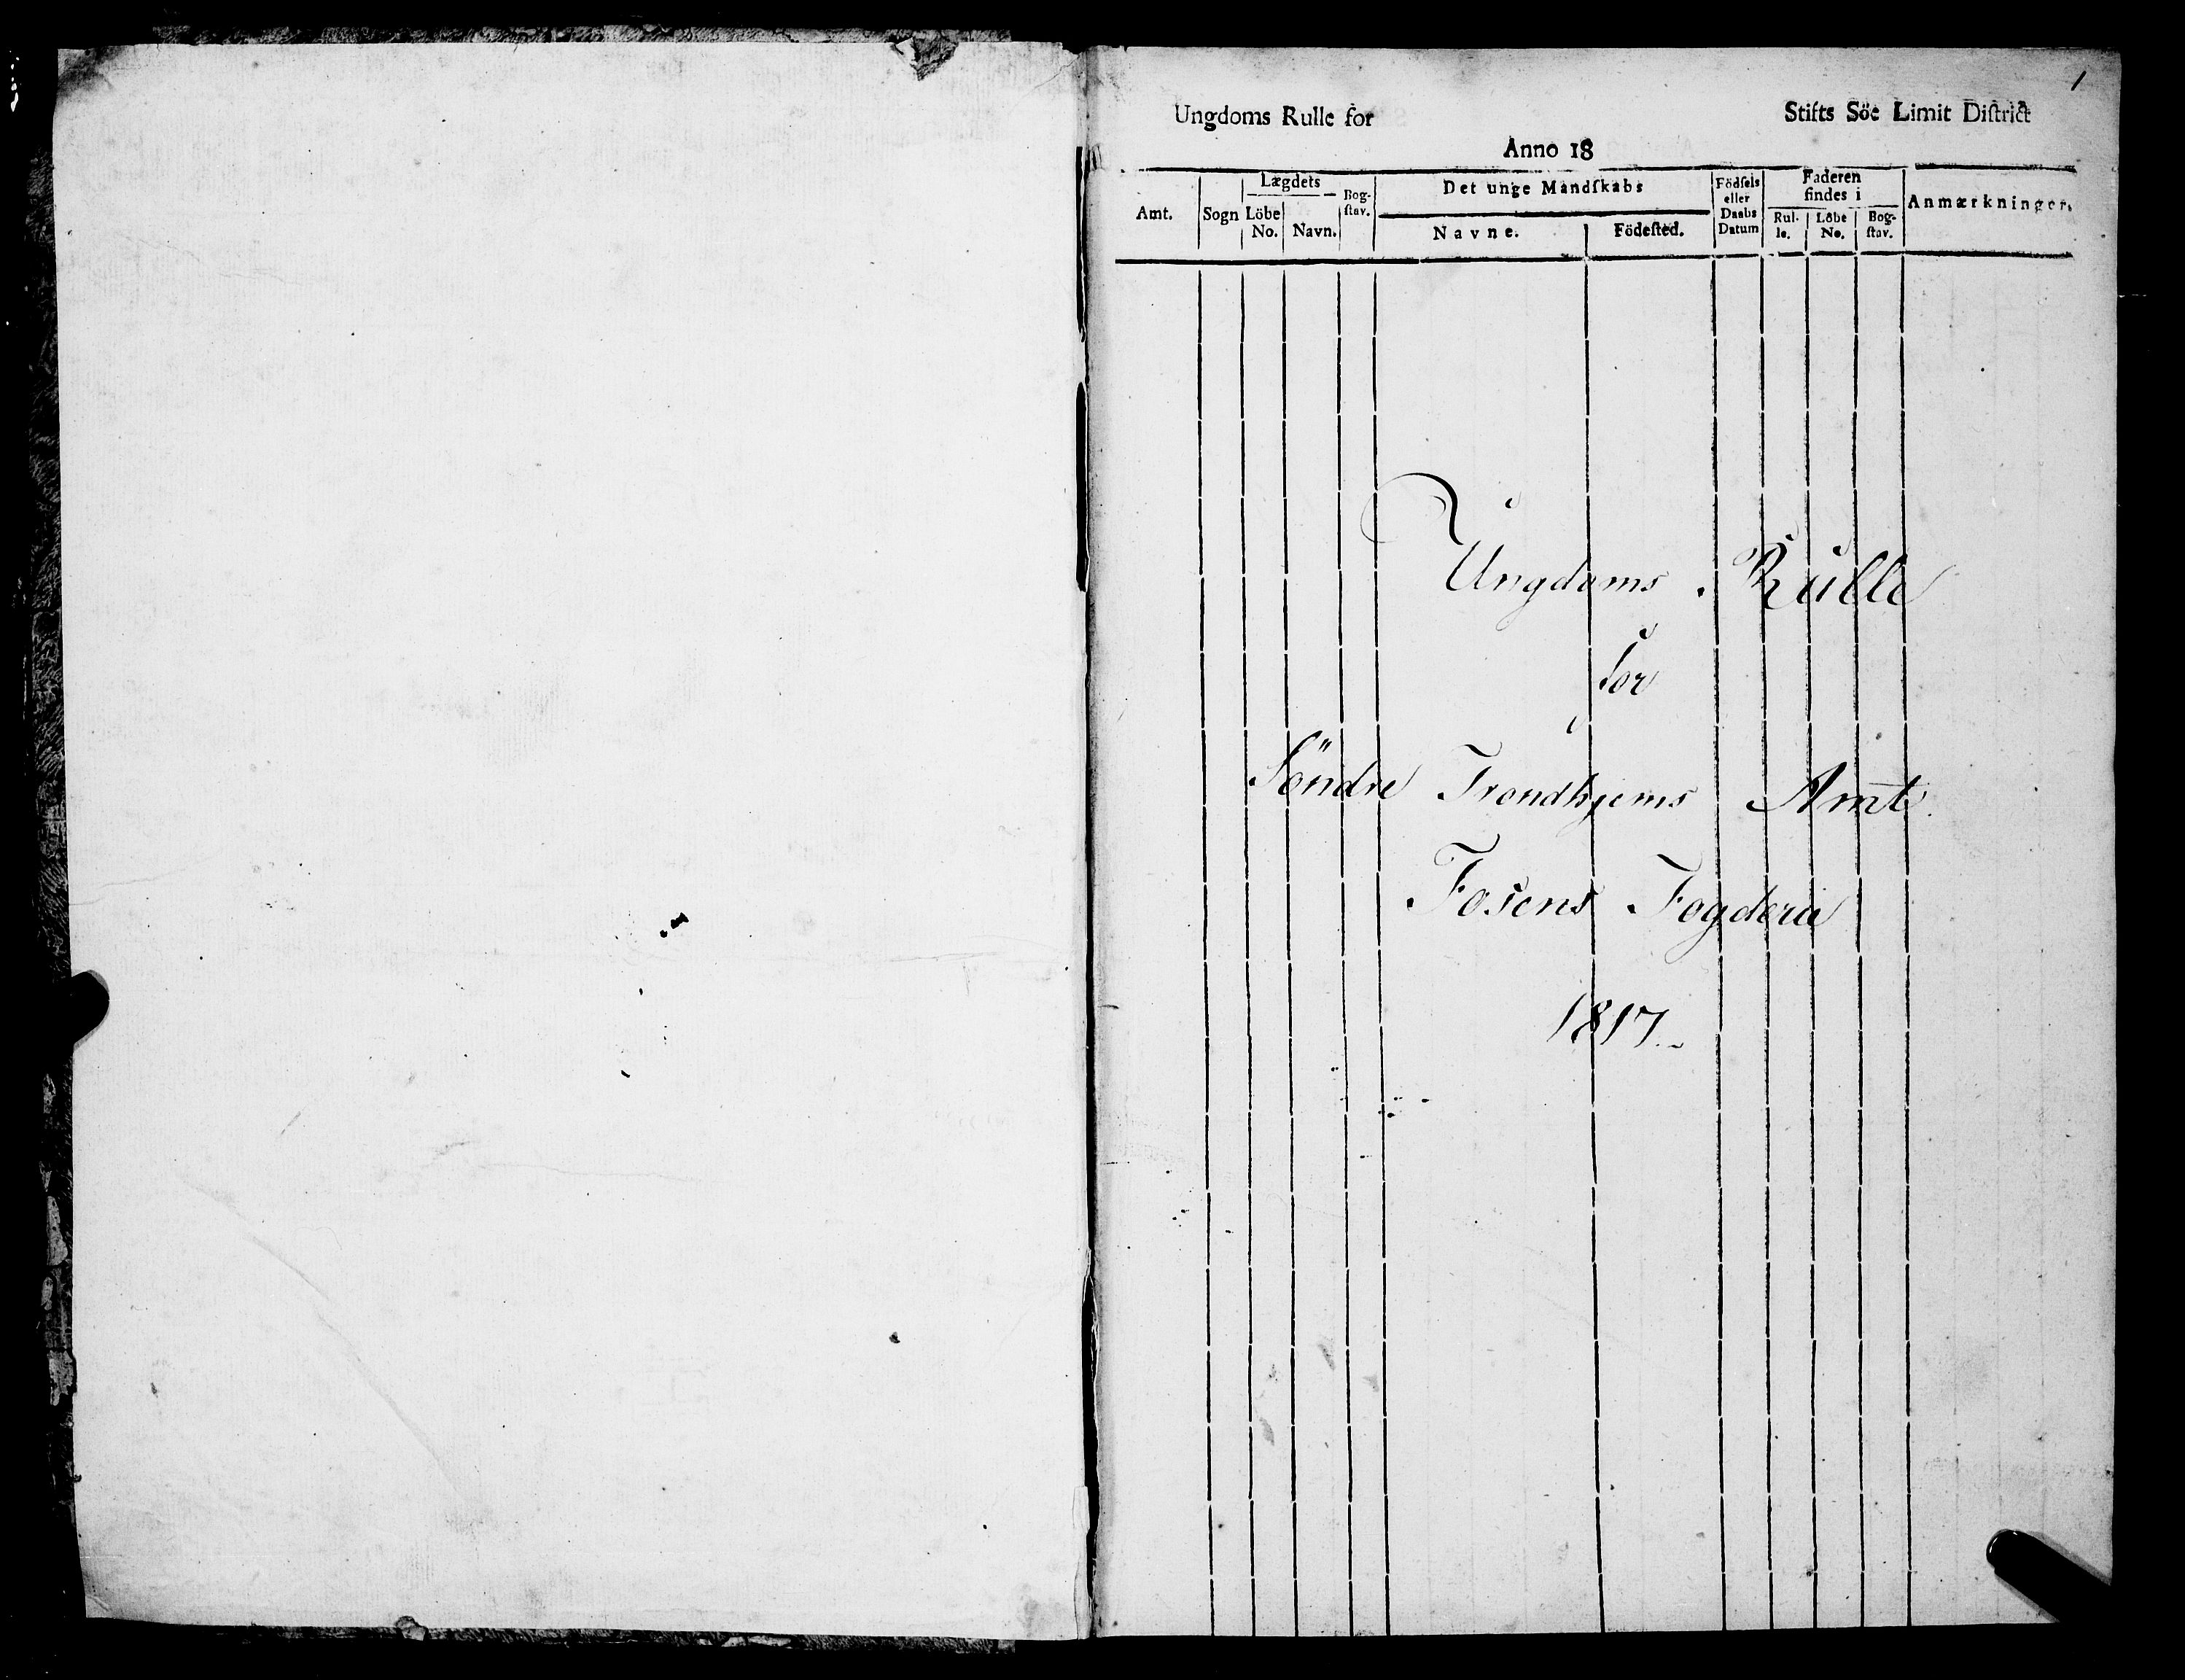 1
Ungdoms Rulle for Stifts Söe Limit Diſtrict
Anno 18
Amt. Sogn Lægdets Löbe No. Navn. Bog-ſtav. Det unge Mandſkabs Navne. Födeſted. Födſels eller Daabs Datum Faderen findes i Rul-le. Löbe No. Bog-ſtav. Anmærkninger.
Ungdoms Rulle
for
Söndre Trondhjems Amt
Fosens Fogderie
1817